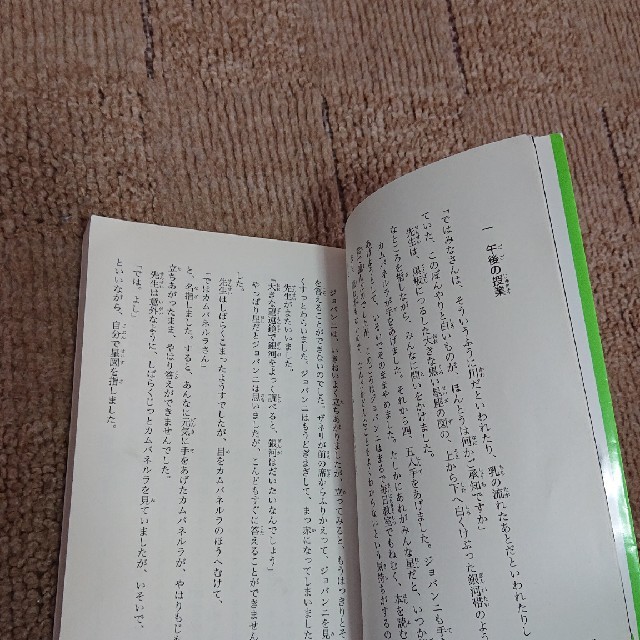 一 午後の授業
「ではみなさんは、そういうふうに川だといわれたり、乳の流れたあとだといわれたりし
ていた、このぼんやりと白いものが、ほんとうは何かご承知ですか」
先生は、黒板につるした大きな黒い星座の図の、上から下へ白くけぶった銀河帯のよう
なところを指しながら、みんなに問いをかけました。
カムパネルラが手をあげました。それから四、五人手をあげました。ジョバンニも手を
あげようとして、いそいでそのままやめました。たしかにあれがみんな星だと、いつか
ジョバンニは、いきおいよく立ちあがりましたが、立ってみると、もうはっきりとそ
を答えることができないのでした。ザネリが前の席からふりかえって、ジョバンニを見
くすっとわらいました。ジョバンニはもうどぎまぎして、まっ赤になってしまいまし
先生がまたいいました。
「大きな望遠鏡で銀河をよっく調べると、銀河はだいたいなんでしょう」
やっぱり星だとジョバンニは思いましたが、こんどもすぐに答えることができません
でした。
先生はしばらくこまったようすでしたが、目をカムパネルラのほうへむけて、
「ではカムパネルラさん」
と、名指しました。すると、あんなに元気に手をあげたカムパネルラが、やはりもじ
立ちあがったまま、やはり答えができませんでした。
先生は意外なように、しばらくじっとカムパネルラを見ていましたが、いそいで、
「では、よし」
といいながら、自分で星図を指しました。